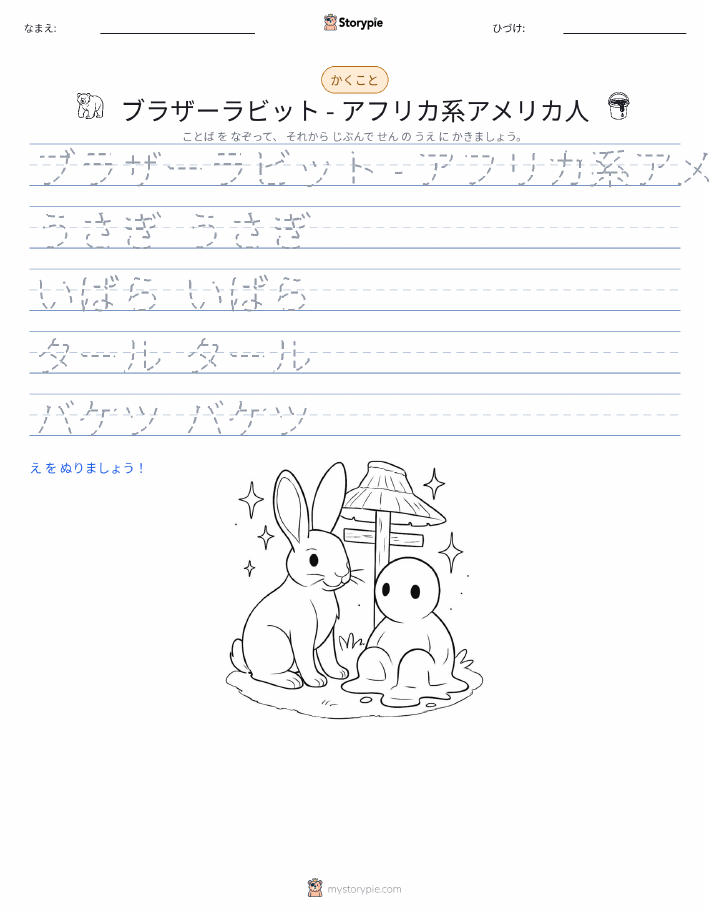 なまえ:
Storypie
ひづけ:
かくこと
ブラザーラビット - アフリカ系アメリカ人
ことば を なぞって、 それから じぶんで せん の うえ に かきましょう。
ブラザーラビット - アフリカ系アメ
うさぎ うさぎ
いばら いばら
タール タール
バケツ バケツ
え を ぬりましょう！
mystorypie.com